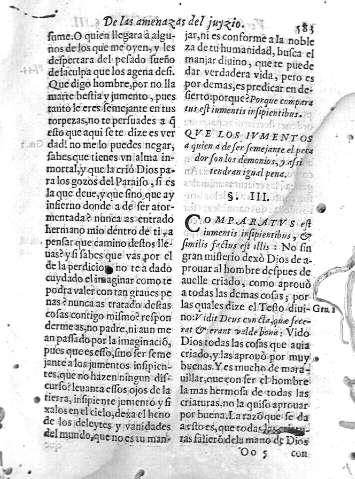 De las amenazas del juyzio. 585
sume. O quien llegara à algu-
nos de los que me oyen, y les
despertara del pesado sueño
de la culpa que los agena de si.
Que digo hombre, por no lla
marte bestia y jumento, pues
tanto le eres semejante en tus
torpezas, no te persuades a q̃
esto que aqui se te dize es ver
dad? no me lo puedes negar,
sabes que tienes vn alma in-
mortal, y que la criò Dios pa-
ra los gozos del Paraiso, si es
la que deue, y que sino, que ay
infierno donde a de ser ator-
mentada? nunca as entrado
hermano mio dentro de ti, a
pensar que camino destos lle-
uas? y si sabes que vas por el
de la perdicion no te a dado
cuydado el imaginar como te
podra valer con tan graues pe
nas? nunca as tratado destas
cosas contigo mismo? respon
derme as, no padre, ni aun me
an passado por la imaginaciō,
pues que es esso, sino ser seme
jante a los jumentos insipien-
tes, que no hazen ningun dis-
curso? leuanta essos ojos de la
tierra, insipiente jumento y fi
xalos en el cielo, dexa el heno
de los deleytes y vanidades
del mundo, que no es tu man-
jar, ni es conforme a la noble
za de tu humanidad, busca el
manjar diuino, que te puede
dar verdadera vida, pero es
por demas, es predicar en de-
sierto: porque? Porque compara
tus est iumentis insipientibus.
QVE LOS IVMENTOS
a quien a de ser semejante el peca
dor son los demonios, y assi
tendran igual pena.
§. III.
COMPARATVS est
iumentis insipientibus, &
similis factus est illis: No sin
gran misterio dexò Dios de a-
prouar al hombre despues de
auelle criado, como aprouò
a todas las demas cosas; por
las quales dize el Testo diui-
no: Vidit Deus cuncta, quæ fece-
rat & erant valde bona: Vido
Dios todas las cosas que auia
criado, y las aprouò por muy
buenas. Y es mucho de mara-
uillar, que con ser el hombre
la mas hermosa de todas las
criaturas, no la quiso aprouar
por buena. La razō que se da
a esto es, que todas las
turas salierō de la mano de Dios
Oo 5 con